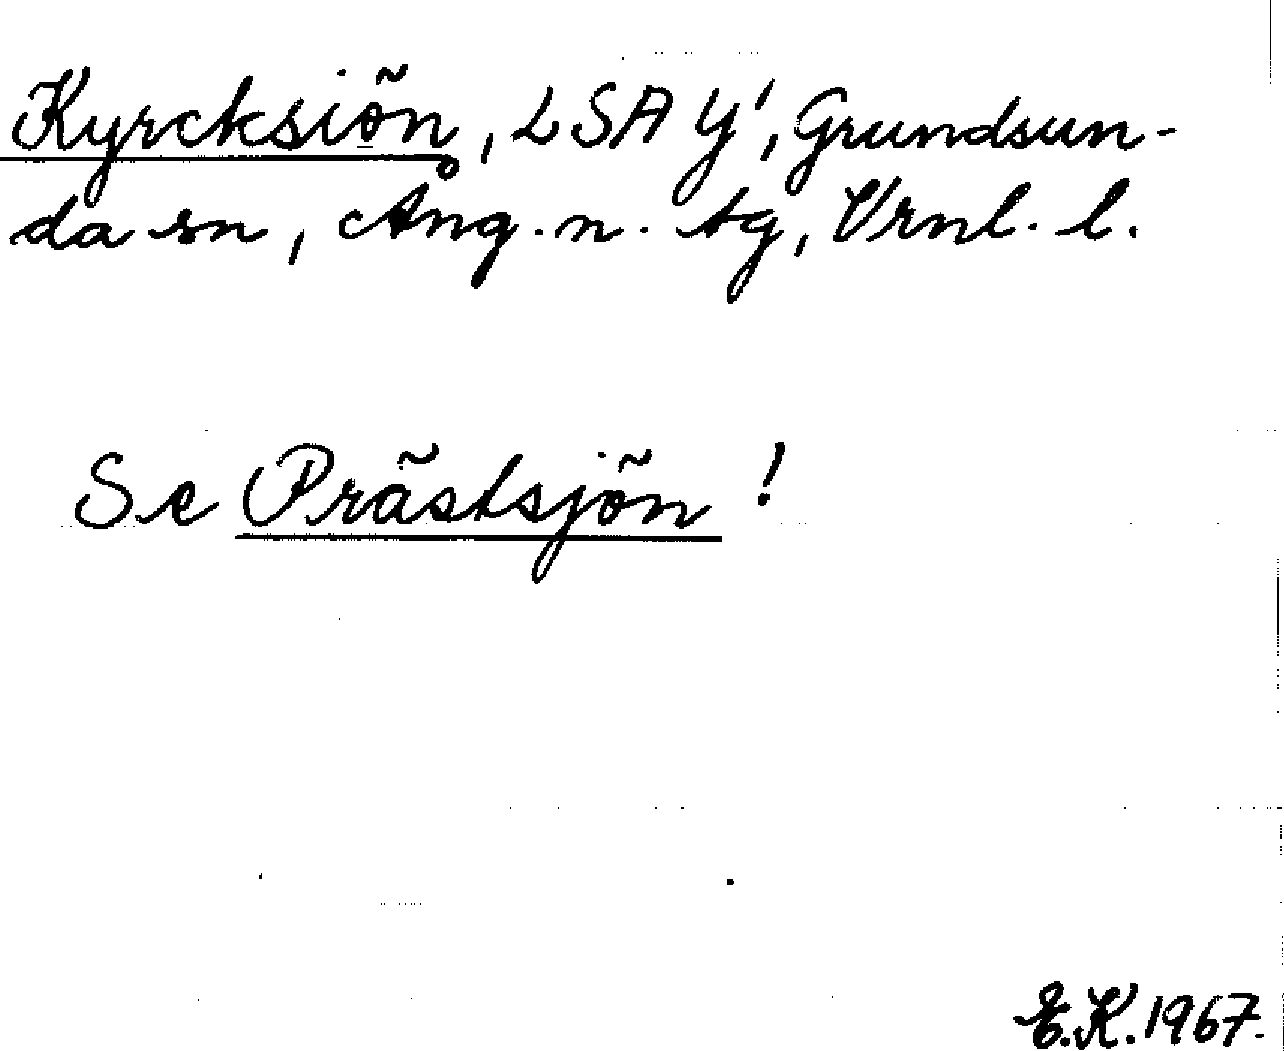 Kyrcksiõn, LSA Y', Grundsun-
da sn, Ång. n. tg, Vrnl. l.
Se Prãstsjõn!
E.K. 1967.